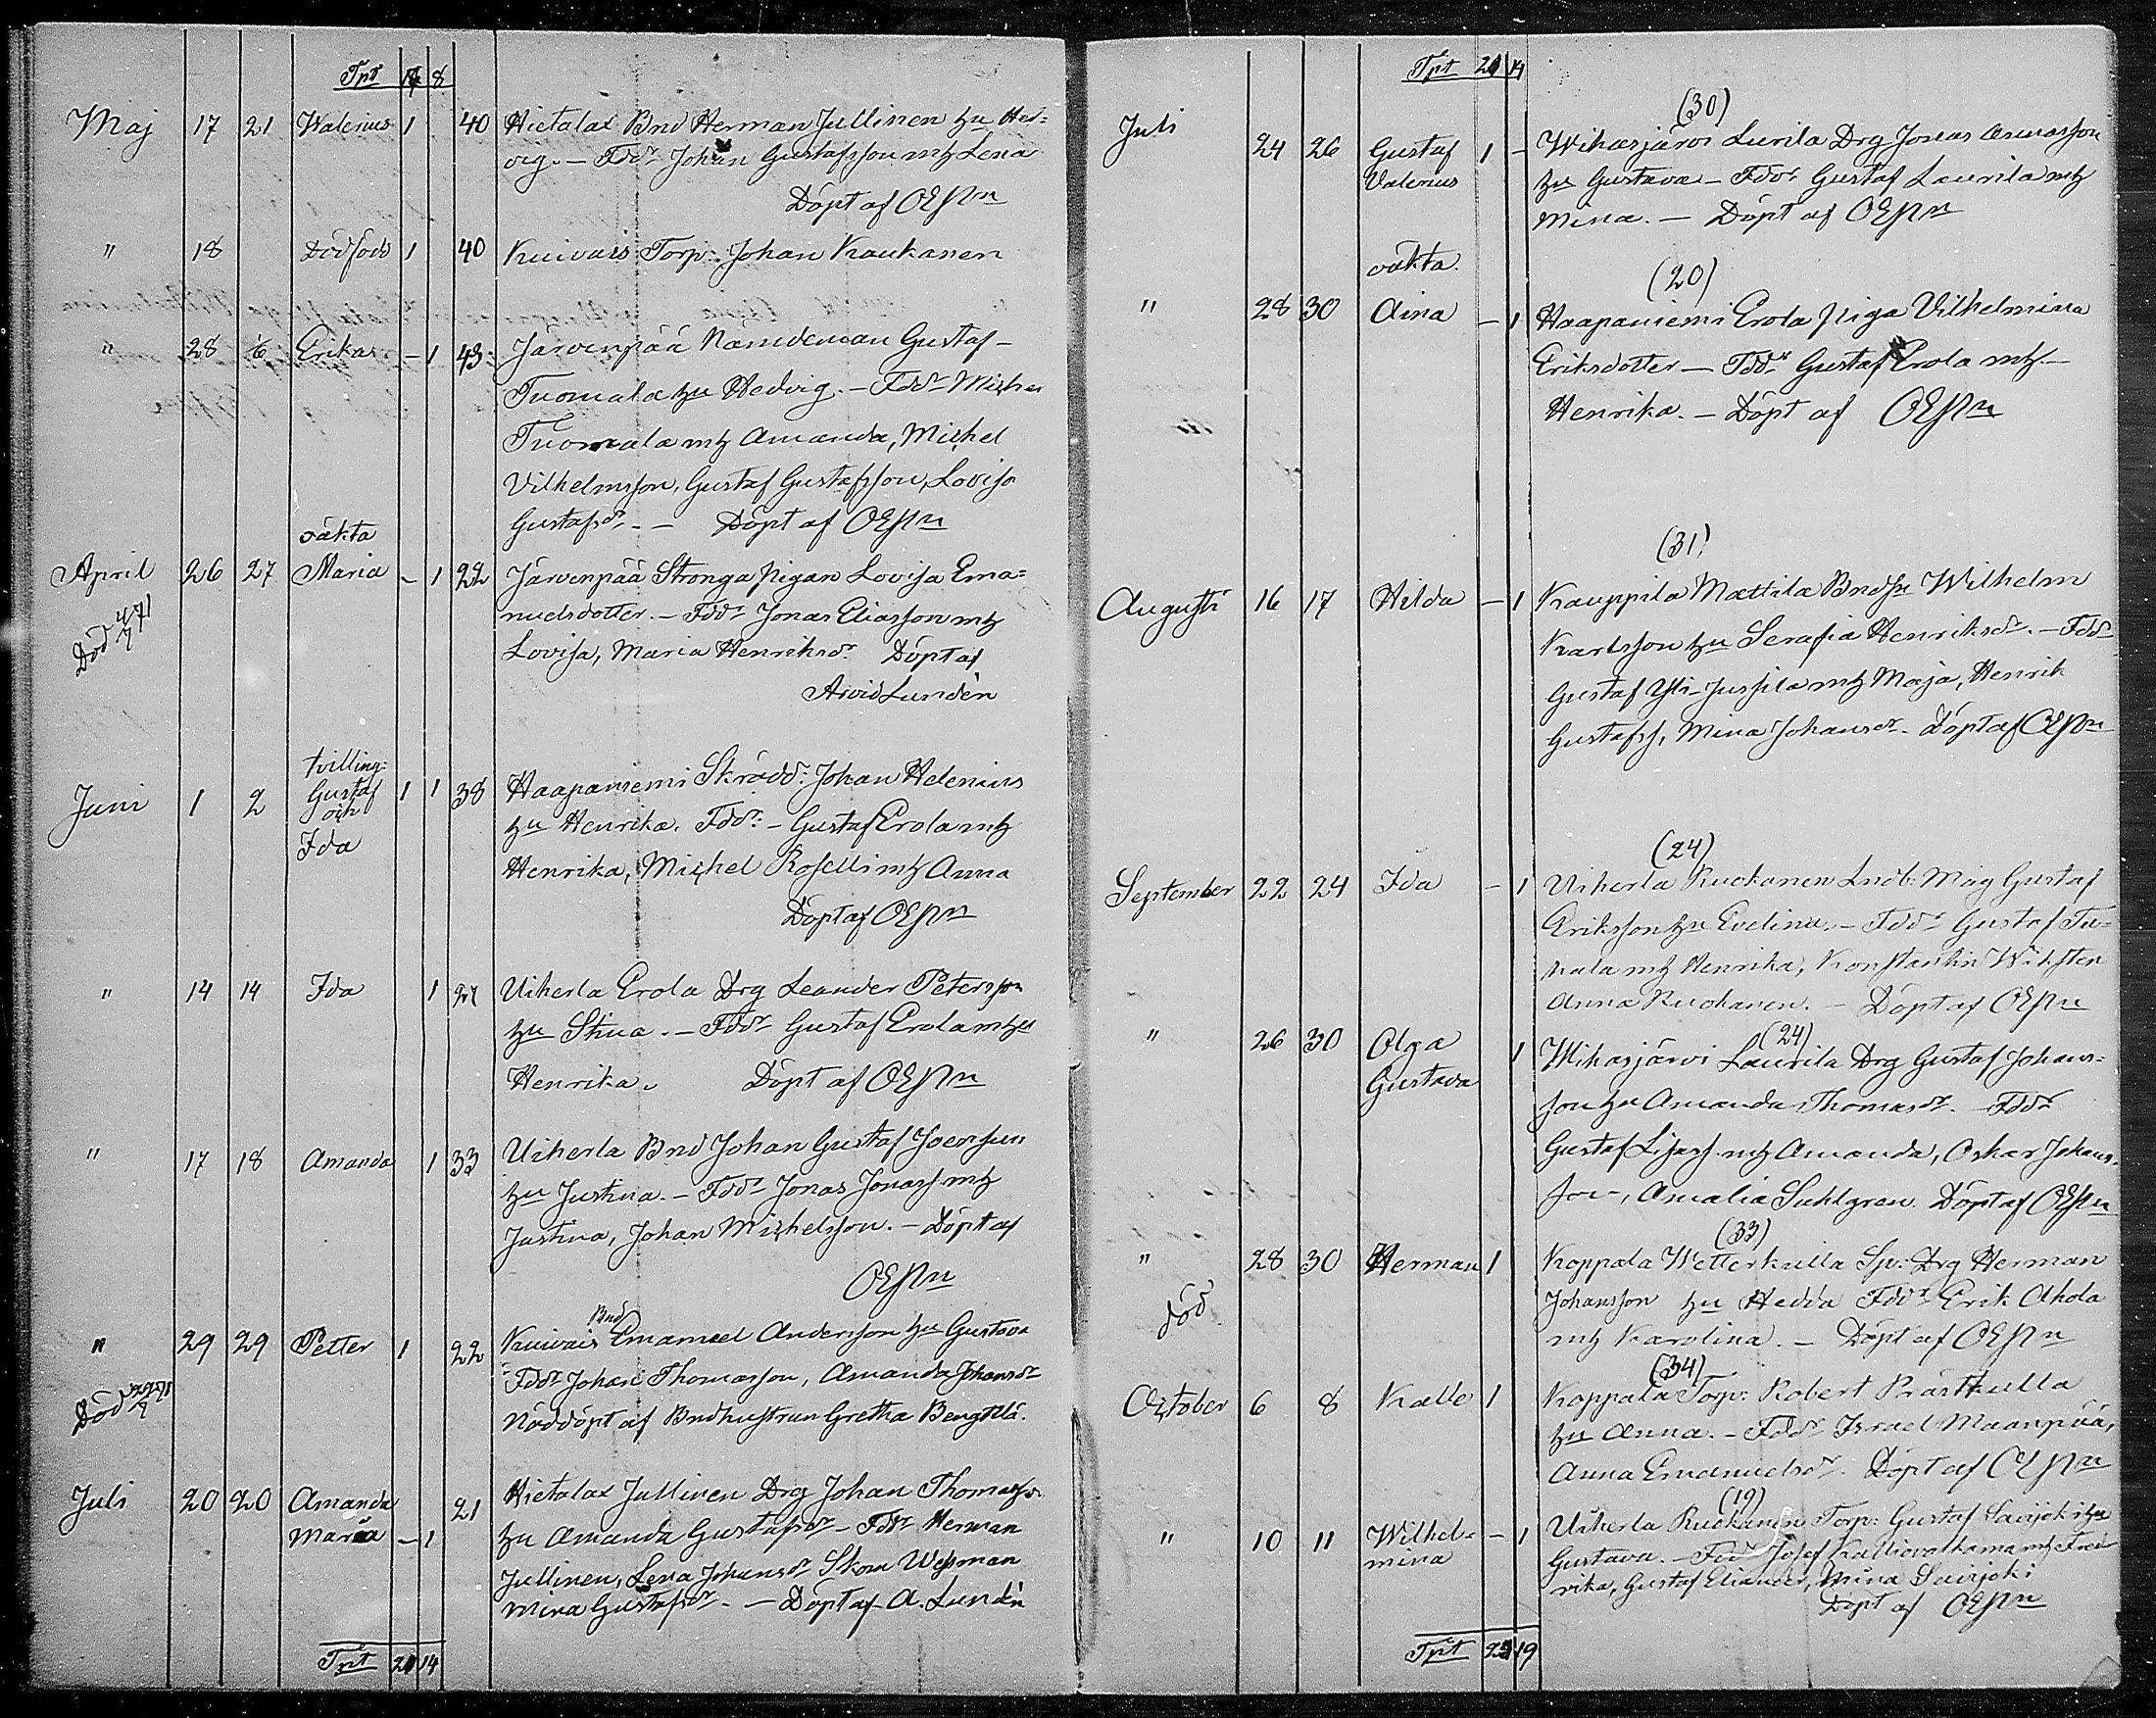 Tpt 8
Maj 17 21 Walerius 1 40 Hietalax Bnd Herman Jullinen hu Hed=
vig. — Fddr Johan Gustafsson mh Lena
Döpt af OEPn
" 18 Dödfödd 1 40 Kuivais Torp: Johan Kaukanen
" 28 Erika – 1 43 Järvenpää Nämndeman Gustaf
Tuomala hu Hedvig. — Fddr Michel
Tuomala mh Amanda, Michel
Vilhelmsson, Gustaf Gustafsson, Lovisa
Gustafsdr. — Döpt af OEPn
oäkta
April 26 27 Maria – 1 22 Järvenpää Stronga pigan Lovisa Ema=
Död 4/7 71 nuelsdotter. — Fddr Jonas Eliasson mh
Lovisa, Maria Henriksdr. Döpt af
Arvid Lundén
tvilling:
Juni 1 2 Gustaf 1 1 38 Haapaniemi Skrädd: Johan Helenius
och hu Henrika. Fddr: – Gustaf Erola mh
Ida Henrika, Michel Roselli mh Anna
Döpt af OEPn
" 14 14 Ida 1 27 Uiherla Erola Drg Leander Petersson
hu Stina. — Fddr Gustaf Erola mhu
Henrika. Döpt af OEPn
" 17 18 Amanda 1 33 Uiherla Bnd Johan Gustaf Joensuu
hu Justina. — Fddr Jonas Jonass. mh
Justina, Johan Michelsson. — Döpt af
OEPn
Bnd
" 29 29 Petter 1 22 Kuivais Emanuel Andersson hu Gustava
Fddr Johan Thomasson, Amanda Johansdr
Död Nöddöpt af Bndhustrun Gretha Bengtlä.
Juli 20 20 Amanda 21 Hietalax Jullinen Drg Johan Thomasson
Maria – 1 hu Amanda Gustafsdr – Fddr Herman
Jullinen, Lena Johansdr Skom Wessman
Mina Gustafsdr. — Döpt af A. Lundén
Tpt 21 14
Tpt 21 14
(30)
Juli 24 26 Gustaf 1 – Wihasjärvi Lurila Drg Jonas Jonasson
Valerius hu Gustava – Fddr Gustaf Laurila mh
Mina. — Döpt af OEPn
oäkta
(20)
" 28 30 Aina – 1 Haapaniemi Erola piga Vilhelmina
Eriksdotter — Fddr Gustaf Erola mh
Henrika. — Döpt af OEPn
(31)
Augusti 16 17 Hilda – 1 Kauppila Mattila Bndsn Wilhelm
Karlsson hu Serafia Henriksdr. — Fddr
Gustaf Yli-Jussila mh Maja, Henrik
Gustafss, Mina Johansdr. Döpt af OEPn
(24)
September 22 24 Ida – 1 Uiherla Ruokanen Lndb: Måg Gustaf
Eriksson hu Evelina. – Fddr Gustaf Tu=
kala mh Henrika, Konstantin Wiksten
Anna Ruokanen. — Döpt af OEPn
(24)
" 26 30 Olga 1 Wihasjärvi Laurila Drg Gustaf Johans=
Gustava son hu Amanda Thomasdr. — Fddr
Gustaf mh Amanda, Oskar Johans=
son, Amalia Sahlgren. Döpt af OEPn
(33)
" 28 30 Herman 1 Koppala Wetterkulla Sp: Drg Herman
död Johansson hu Hedda Fddr Erik Ahola
mh Karolina. — Döpt af OEPn
(34)
October 6 8 Kalle 1 Koppala Torp: Robert Prästkulla
hu Anna. – Fddr Israel Maanpää,
Anna Emanuelsdr. Döpt af OEPn
(19)
" 10 11 Wilhel= – 1 Uiherla Ruokanen Torp: Gustaf Suijoki hu
mina Gustava. — Fddr Josef Kalliovalkama mh Fred
rika, Gustaf Eliander, Mina Suijoki
Döpt af OEPn
Tpt 19